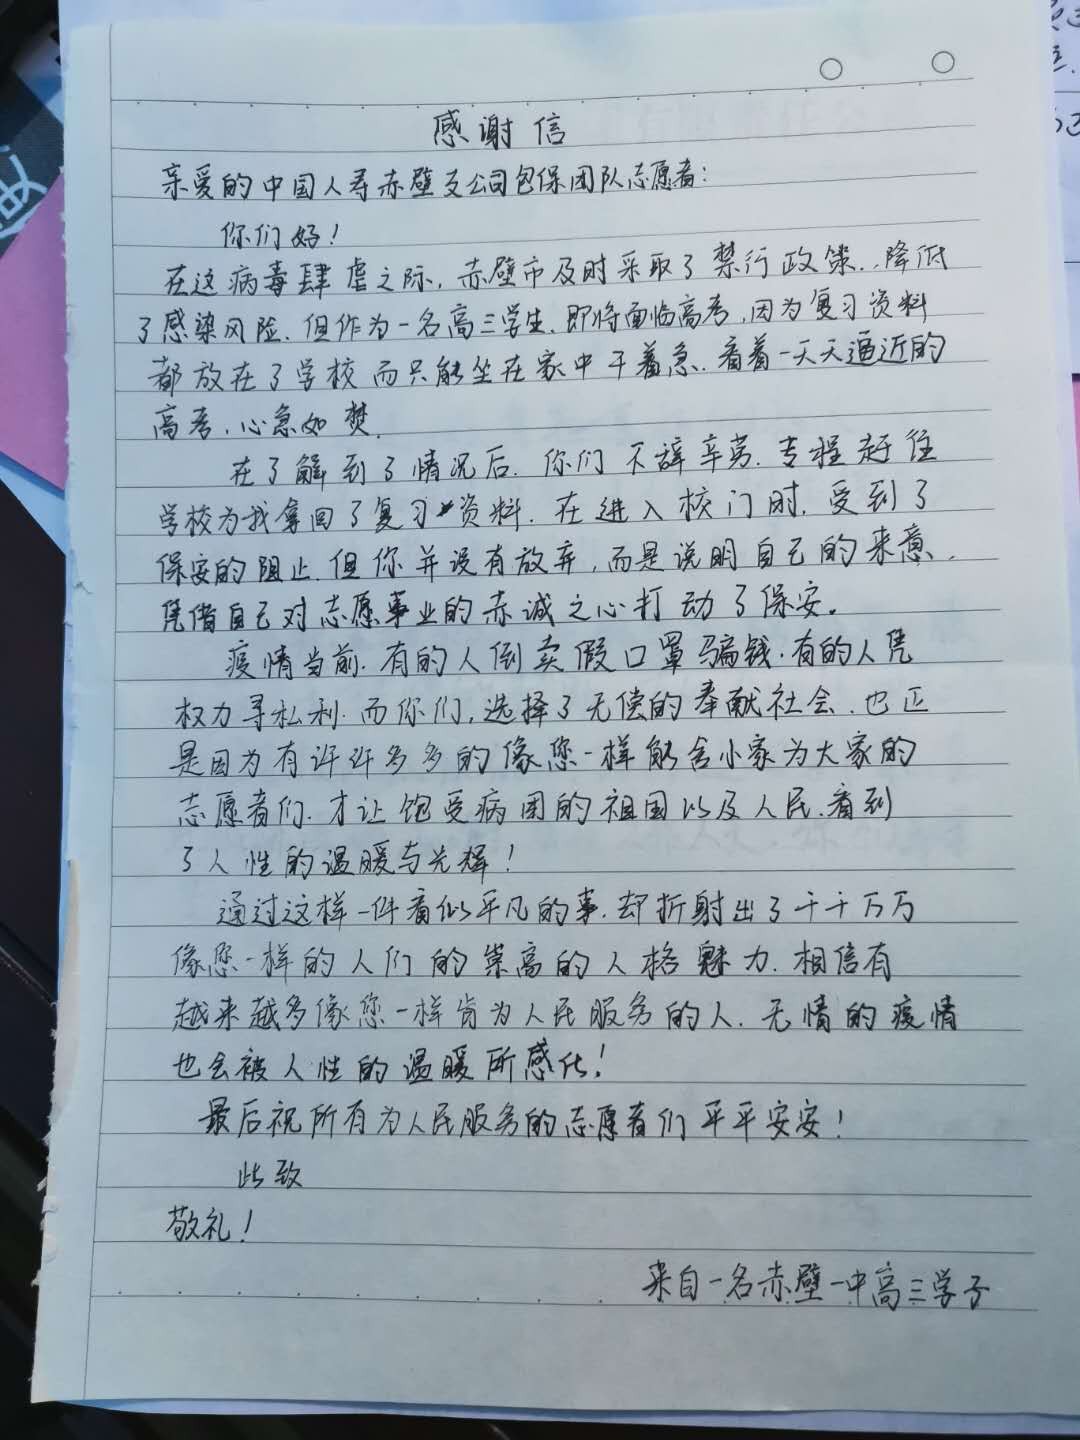 感谢信
亲爱的中国人寿赤壁支公司包保团队志愿者:
你们好!
在这病毒肆虐之际,赤壁市及时采取了禁行政策..降低
了感染风险.但作为一名高三学生.即将面临高考,因为复习资料
都放在了学校而只能坐在家中干着急.看着一天天逼近的
高考,心急如焚.
在了解到了情况后.你们不辞辛劳.专程赶往
学校为我拿回了复习资料.在进入校门时,受到了
保安的阻止.但你并没有放弃,而是说明自己的来意.
凭借自己对志愿事业的赤诚之心打动了保安。
疫情当前.有的人倒卖假口罩骗钱.有的人凭
权力寻私利.而你们,选择了无偿的奉献社会.也正
是因为有许许多多的像您一样能舍小家为大家的
志愿者们.才让饱受病困的祖国以及人民.看到
了人性的温暖与光辉!
通过这样一件看似平凡的事.却折射出了千千万万
像您一样的人们的崇高的人格魅力.相信有
越来越多像您一样肯为人民服务的人.无情的疫情
也会被人性的温暖所感化!
最后祝所有为人民服务的志愿者们平平安安!
此致
敬礼!
来自一名赤壁一中高三学子